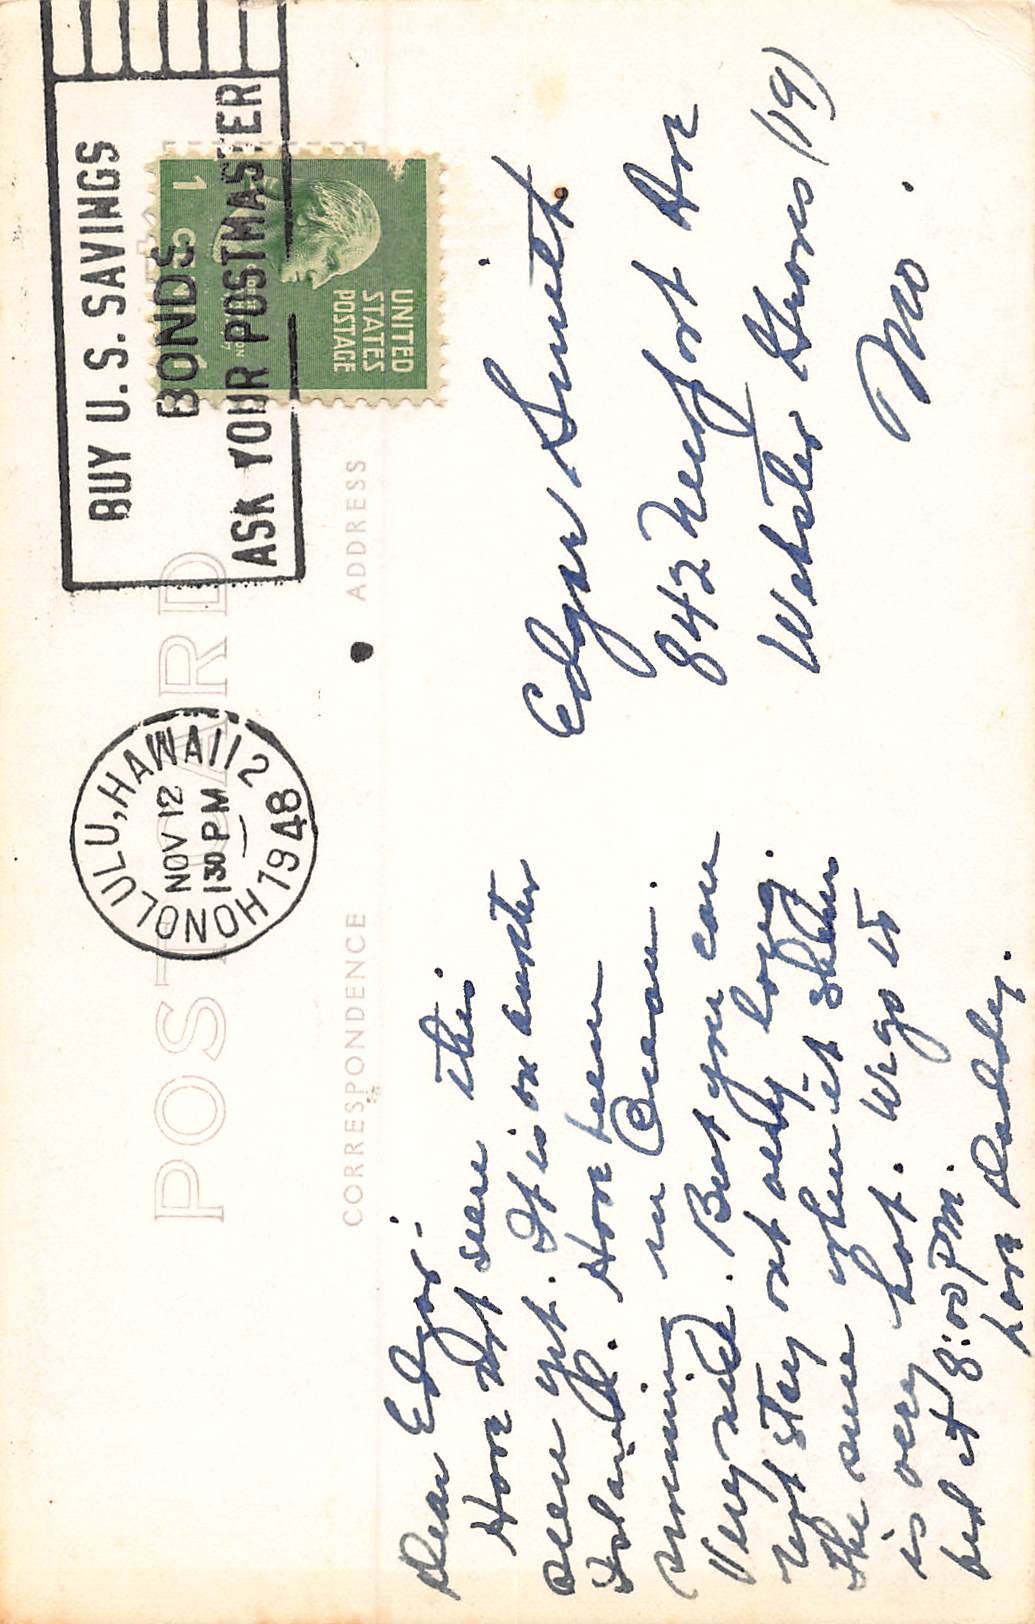 POST CARD
CORRESPONDENCE
ADDRESS
HONOLULU, HAWAII 2
NOV 12
130 PM
1948
BUY U.S. SAVINGS
BONDS
ASK YOUR POSTMASTER
UNITED
STATES
POSTAGE
1
Dear Edgar:-
Have Not seen this
seen yet. It is on another
Island. Have been
swimming in Ocean.
Very nice. But you can
not stay out only long.
The sun when it shines
is very hot. We go to
bed at 8:00 PM.
Love Daddy.
Edgar Smith
842 Newport Ave
Webster Groves (19)
Mo.